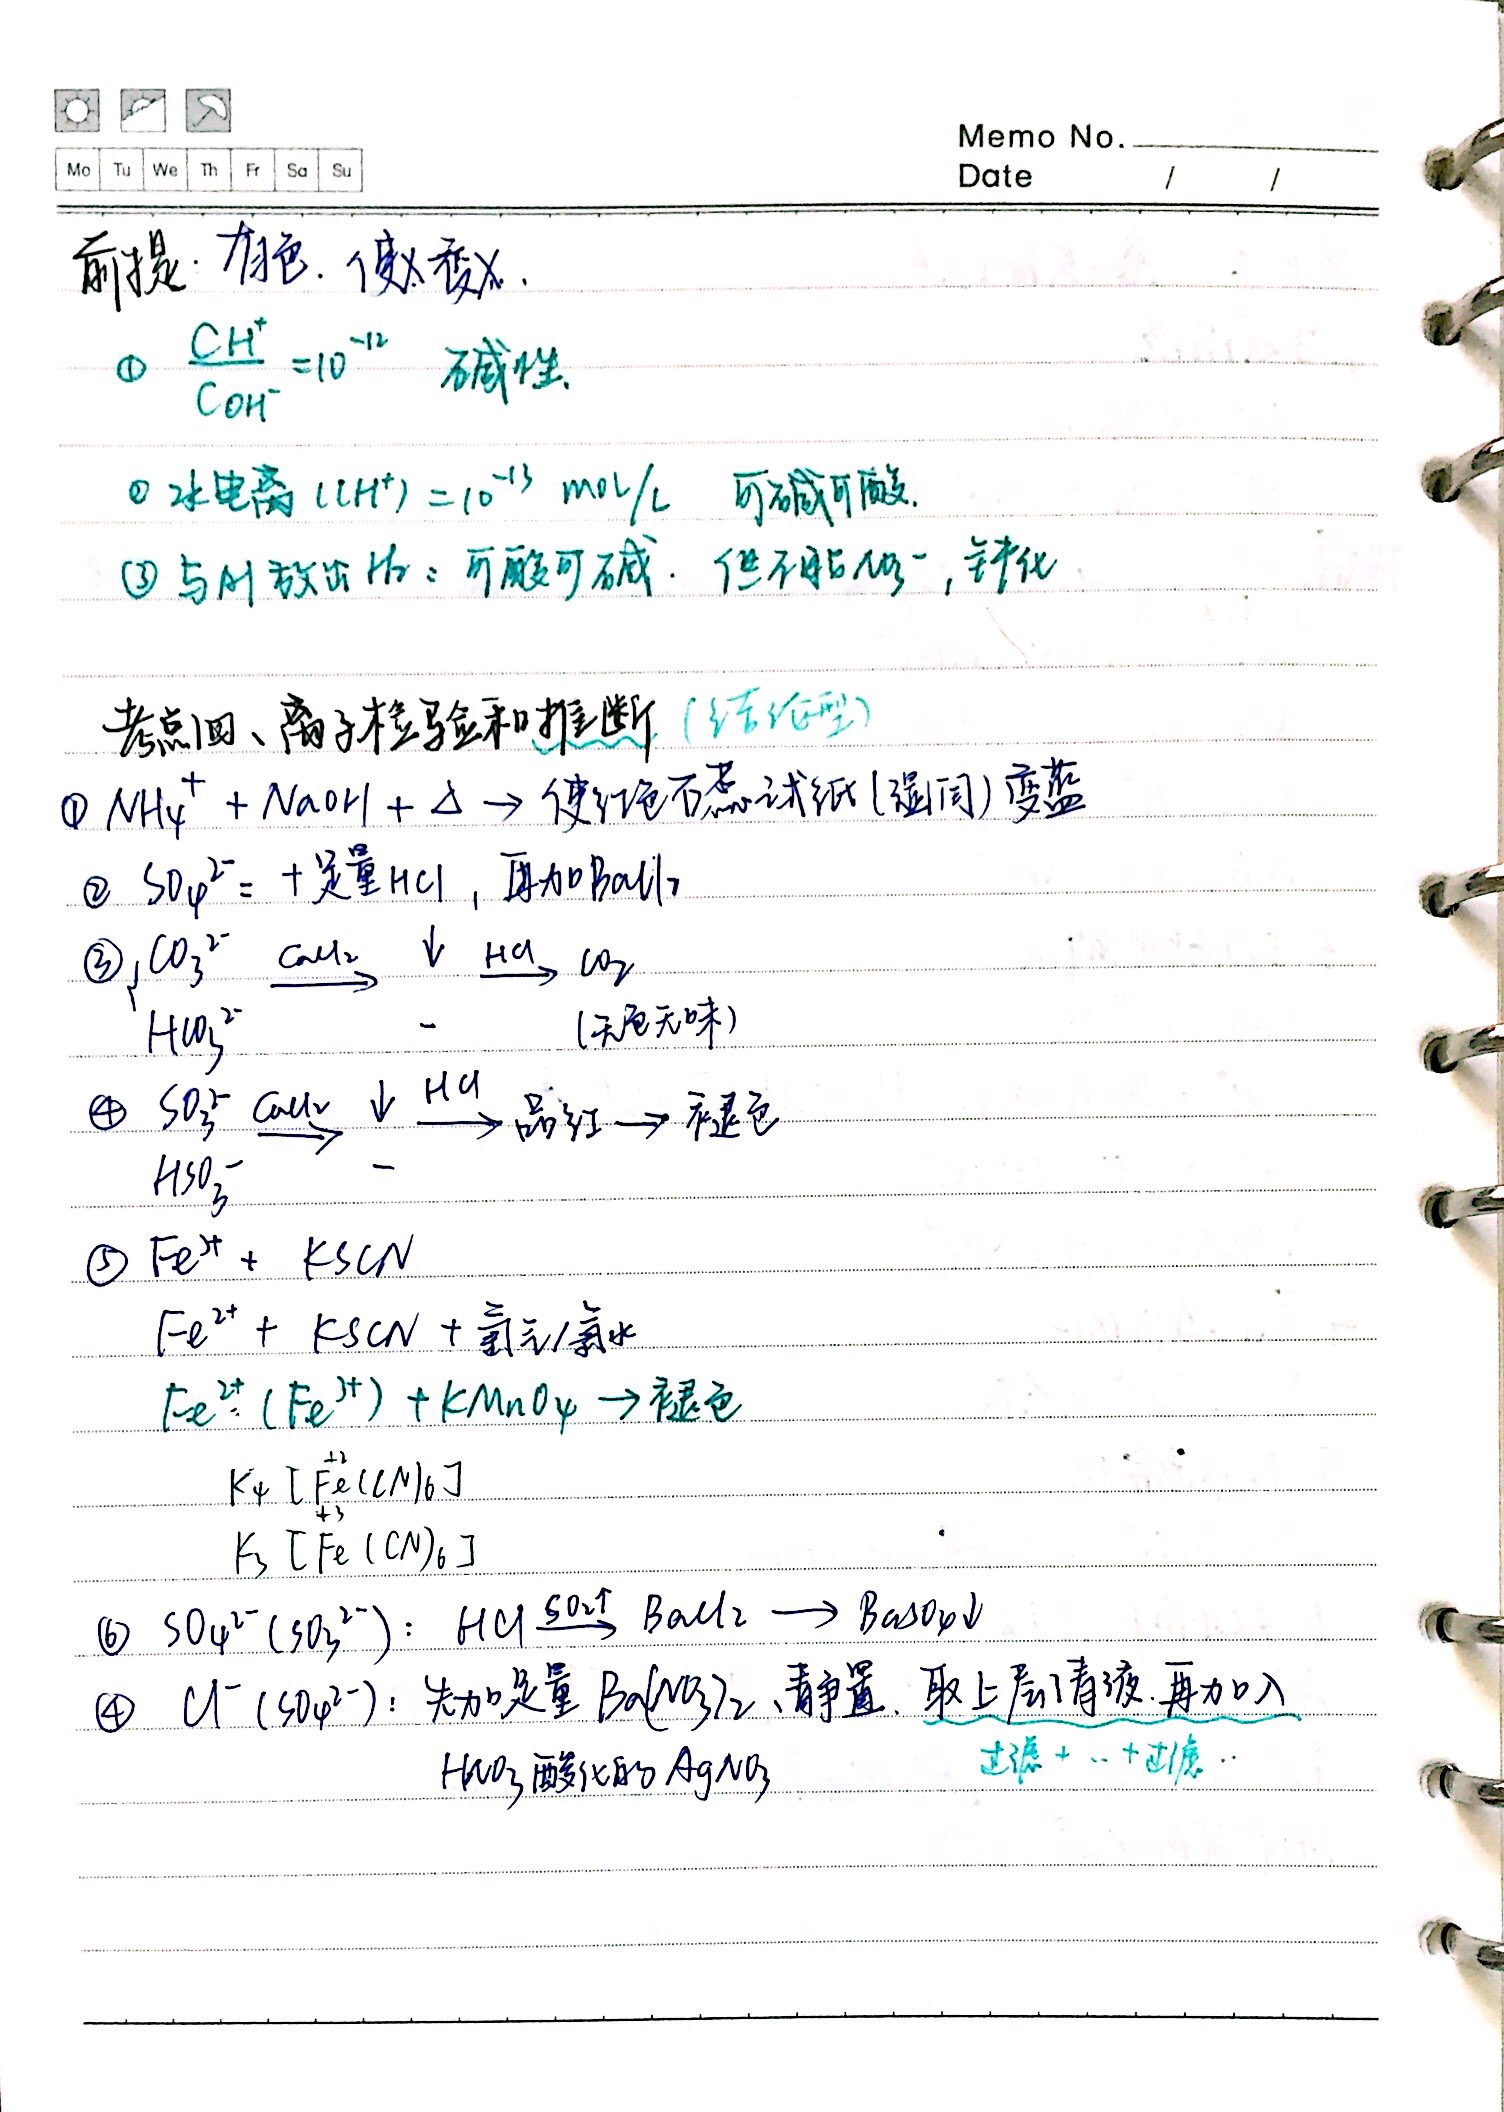 Mo Tu We Th Fr Sa Su
Memo No.
Date / /
前提: 有色. 使X变X.
① CH⁺/COH⁻ =10⁻¹² 碱性.
② 水电离(CH⁺) =10⁻¹³ mol/L 可碱可酸.
③ 与Al放出H₂: 可酸可碱. 但不能与NO₃⁻, 钝化
考点四、离子检验和推断 (结论型)
① NH₄⁺ + NaOH + △ → 使红色石蕊试纸(湿润)变蓝
② SO₄²⁻: +足量HCl, 再加BaCl₂
③ CO₃²⁻ CaCl₂→ ↓ HCl→ CO₂
HCO₃²⁻ - (无色无味)
④ SO₃²⁻ CaCl₂→ ↓ HCl→ 品红 → 褪色
HSO₃⁻ -
⑤ Fe³⁺ + KSCN
Fe²⁺ + KSCN + 氯气/氯水
Fe²⁺: (Fe³⁺) + KMnO₄ → 褪色
+2
K₄[Fe(CN)₆]
+3
K₃[Fe(CN)₆]
⑥ SO₄²⁻(SO₃²⁻): HCl SO₂↑→ BaCl₂ → BaSO₄↓
④ Cl⁻(SO₄²⁻): 先加足量Ba(NO₃)₂、静置. 取上层清液.再加入
过滤 + ‥ + 过滤 ‥
HNO₃酸化的AgNO₃